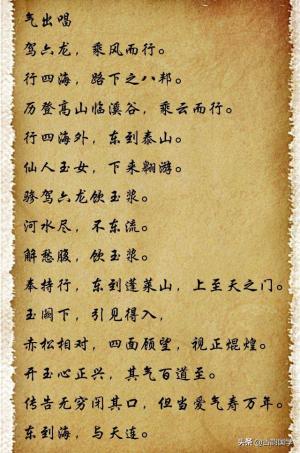 气出唱
驾六龙，乘风而行。
行四海，路下之八邦。
历登高山临溪谷，乘云而行。
行四海外，东到泰山。
仙人玉女，下来翱游。
骖驾六龙饮玉浆。
河水尽，不东流。
解愁腹，饮玉浆。
奉持行，东到蓬莱山，上至天之门。
玉阙下，引见得入，
赤松相对，四面顾望，视正焜煌。
开玉心正兴，其气百道至。
传告无穷闭其口，但当爱气寿万年。
东到海，与天连。
头条@古韵国学